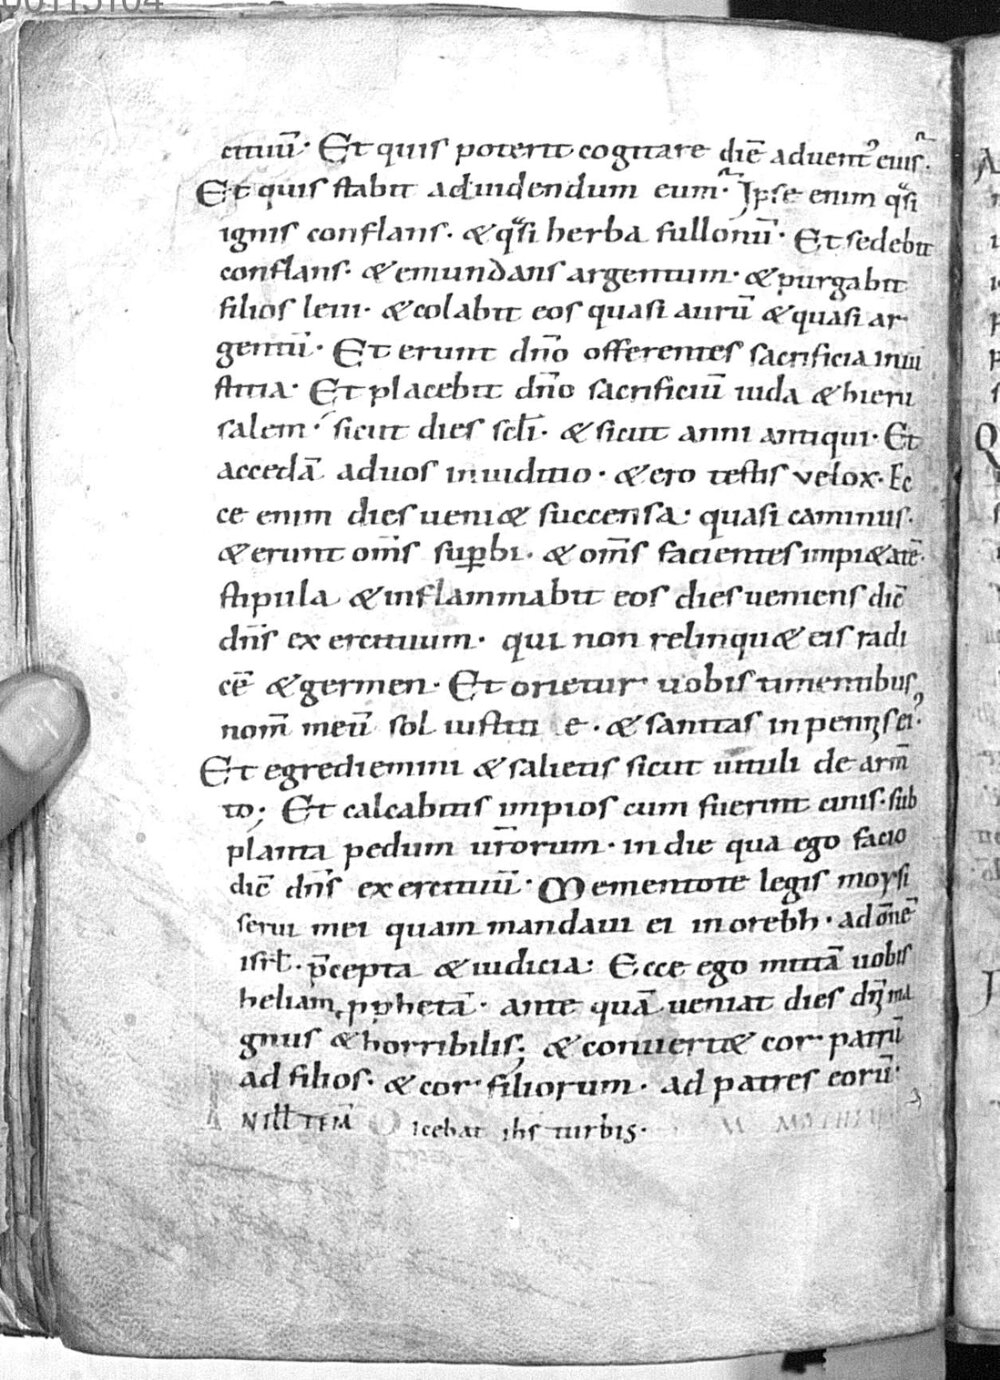 citiuū· Et quis poterit cogitare diē aduent᾽ eius·
Et quis stabit ad uidendum eum· Ipse enim qͣsi
ignis conflans· & qͣsi herba fullonū· Et sedebit
conflans· & emundans argentum· & purgabit
filios leui· & colabit eos quasi aurū & quasi ar
gentū· Et erunt dn̄o offerentes sacrificia in iu
stitia· Et placebit dn̄o sacrificiū iuda & hieru
salem· sicut dies scl̄i· & sicut anni antiqui· Et
accedā ad uos in iuditio· & ero testis velox· Ec
ce enim dies ueni& succensa· quasi caminus·
& erunt om̄s suꝑbi· & om̄s facientes impi&atē·
stipula & inflammabit eos dies ueniens dic̄
dn̄s exercituum· qui non relinqu& eis radi
cē & germen· Et orietur uobis timentibus
nom̄ meū sol iustitie· & sanitas in pennis ei᾽·
Et egrediemini & salietis sicut uituli de arm̄
to; Et calcabitis impios cum fuerint cinis· sub
planta pedum ur̄orum· in die qua ego facio
dic̄ dn̄s exercituū· Mementote legis moysi
serui mei quam mandaui ei in orebh· ad om̄ē
isrł· p̄cepta & iudicia· Ecce ego mittā uobis
heliam ꝓphetā· ante quā ueniat dies dn̄i ma
gnus & horribilis; & conuert& cor patrū
ad filios· & cor filiorum· ad patres eorū·
IN ILL TEM̄ Dicebat ih̄s turbis·